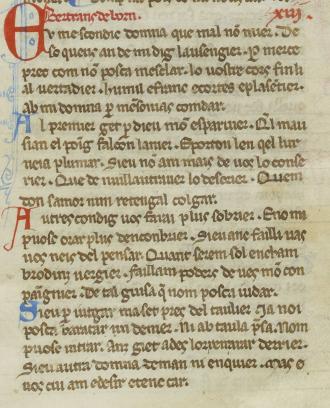 Bertrans de born. xiij
Eu mescondic domna que mal non mier. De
so queus an de mi dig lausengier. Per merce
prec com nō posca mesclar. lo uostre cors fin li
al uertadier. humil e franc e cortes e plasētier.
ab mi domna per mēsonias comdar.
Al premier get perdieu mō esparuier. Ql mau
sian el poīg falcon lanier. E porton len qel lur
ueia plumar. Sieu nō am mais de uos lo conse
rier. Que de nuill autruier lo desrier. Quem
don samor num retengal colgar.
Autrescondig uos farai plus sobrier. E no mi
puose orar plus dencombrier. Sieu anc failli uas
uos neis del pensar. Quant serem sol en cham
bro dinz uergier. faillam poders de ues mō con
pāgnier. De tal guisa q nom posca iudar.
Sieu per iugar ma set pres del taulier. Ja noi
posca baratar un denier. Ni ab taula psa. Nom
puose intrar. Anz giet ades lo reirazar derrier.
Sieu autra domna deman ni enquier. Mas
uos cui am e desir e tenc car.